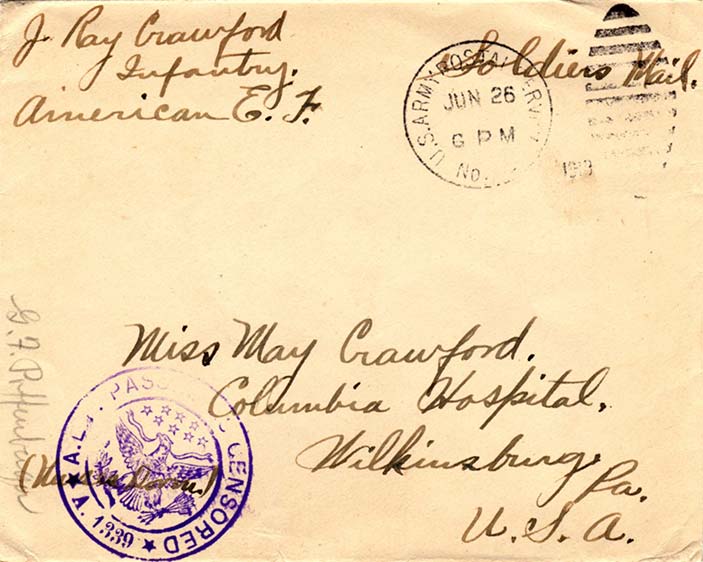 J. Ray Crawford
Infantry.
American E. F.
Soldiers Mail.
U.S. ARMY POSTAL SERVICE
JUN 26
6 PM
No.
1918
Miss May Crawford.
Columbia Hospital,
Wilkinsburg.
Pa.
U. S. A.
A.E.F. PASSED AS CENSORED
A. 1339